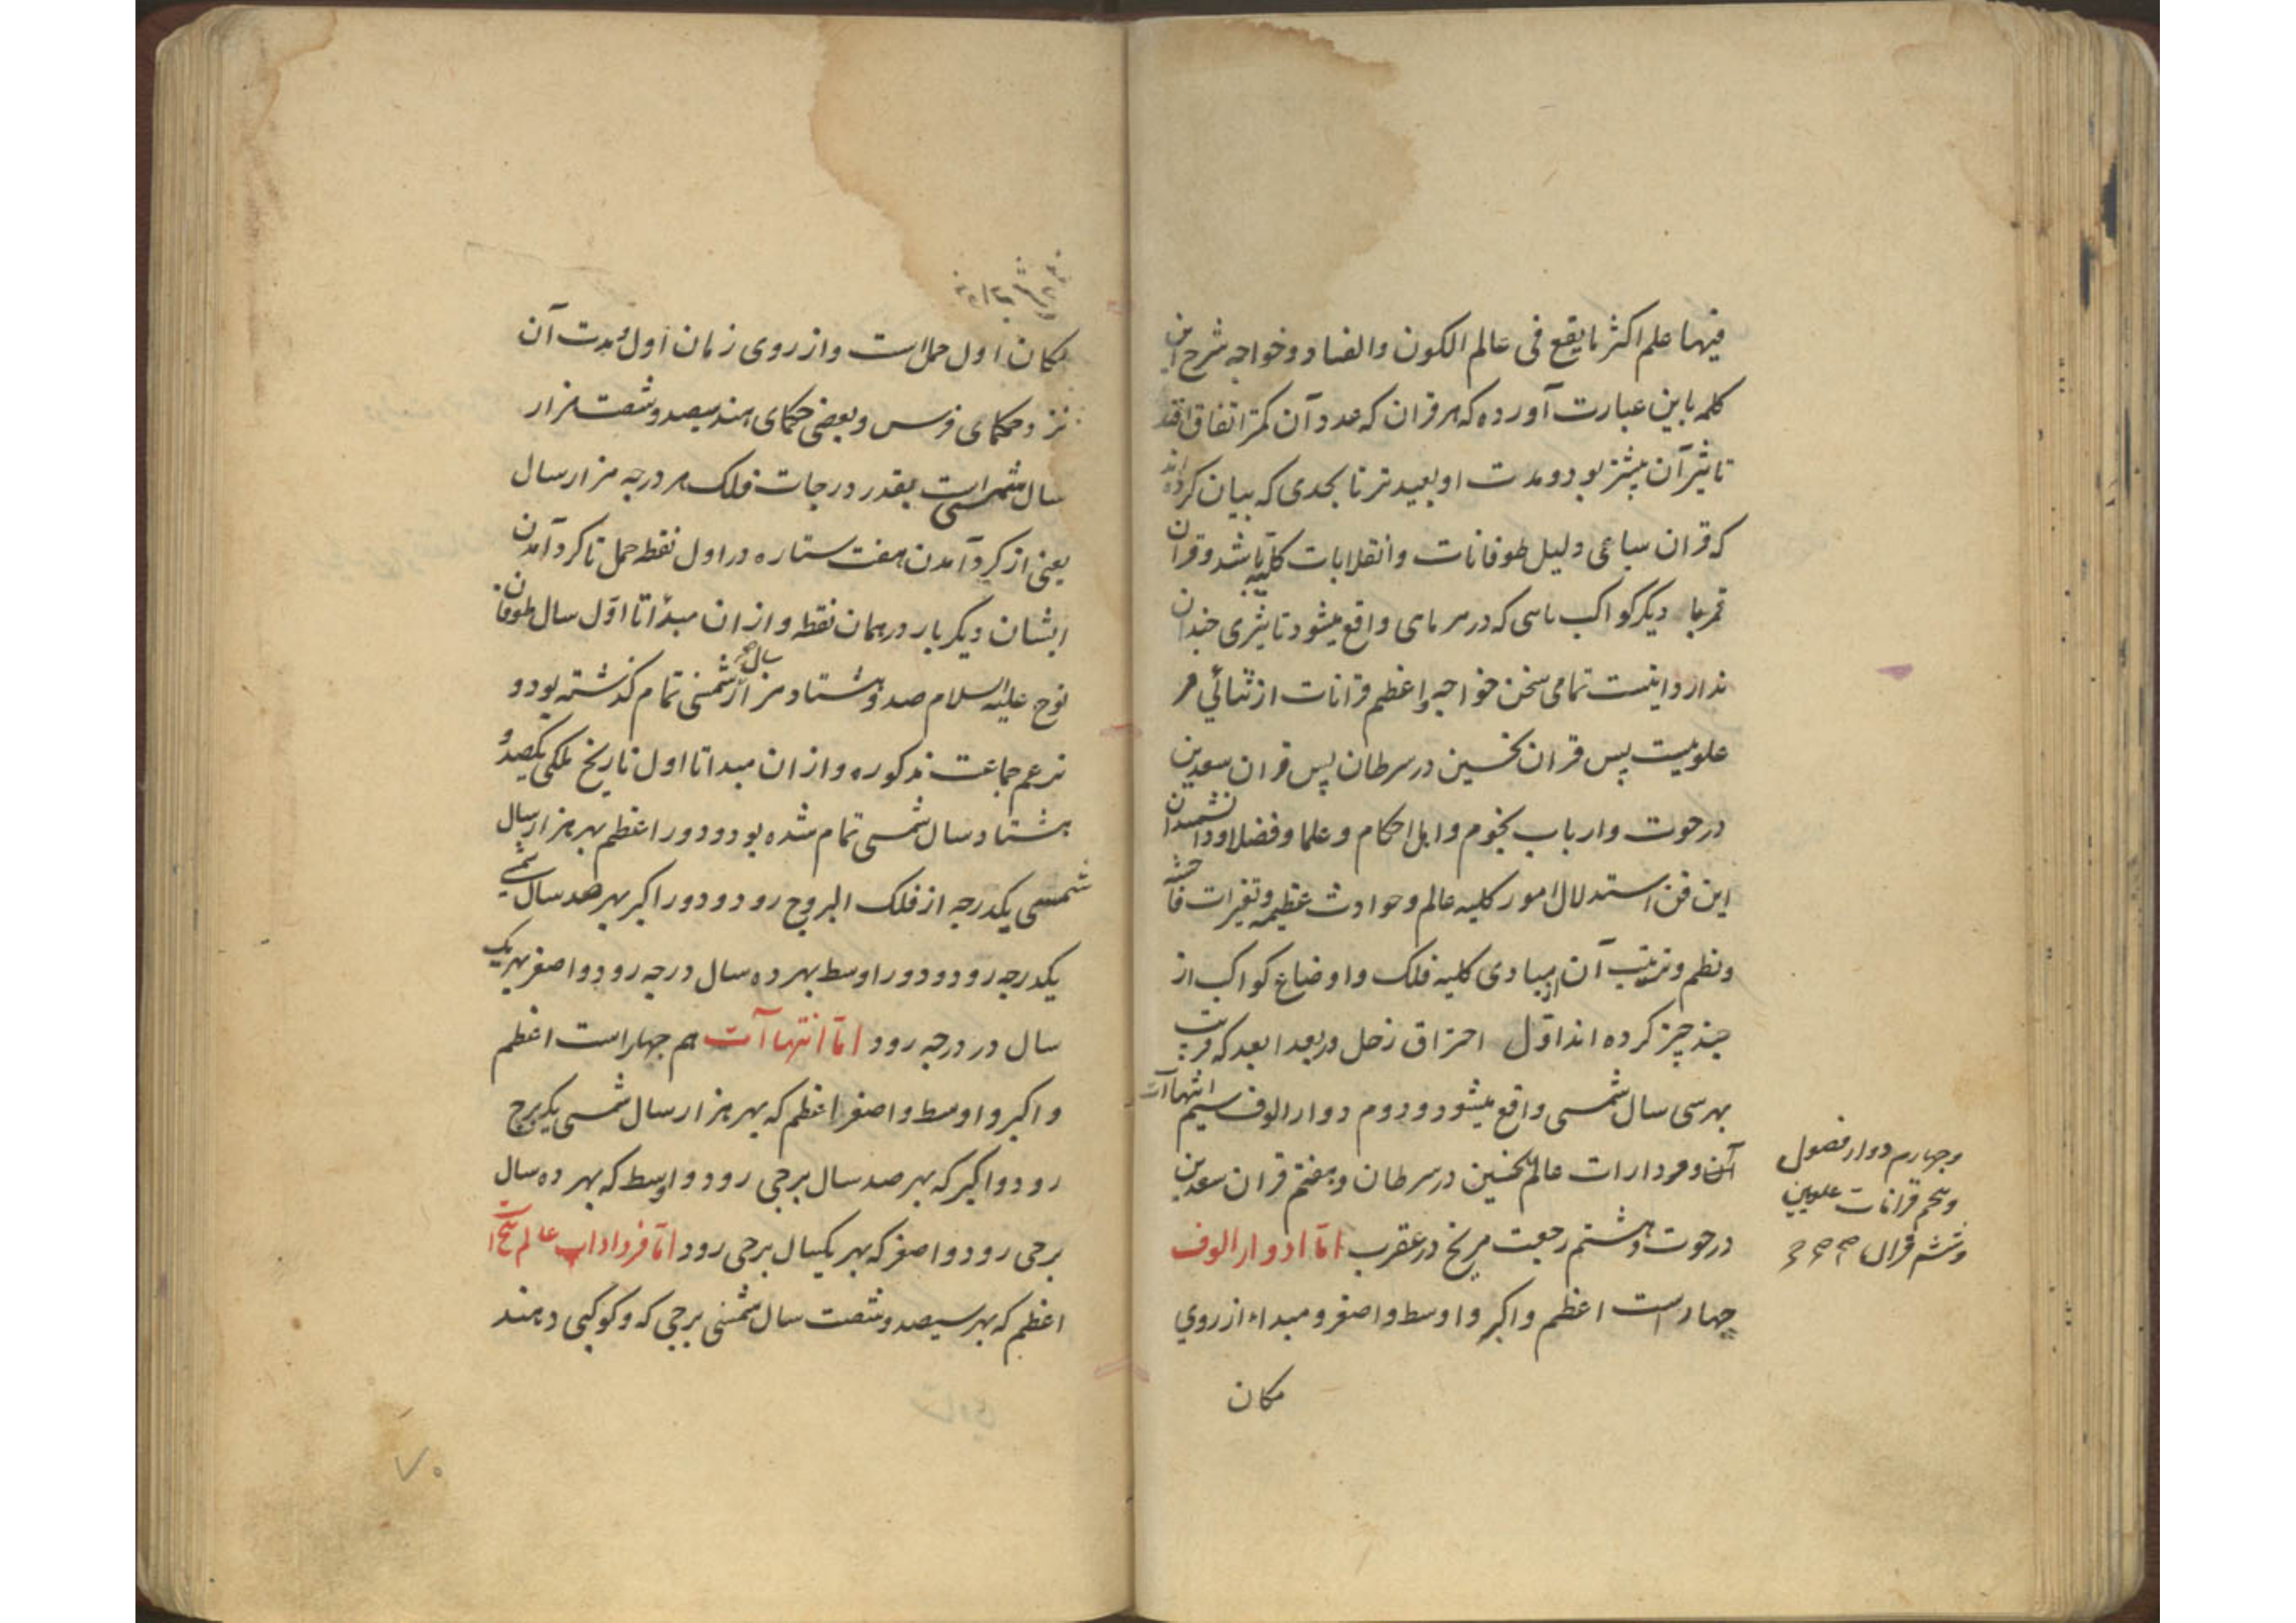 فیها علم اکثر ما یقع فی عالم الکون والفساد و خواجه شرح این
کلمه باین عبارت آورده که هر قران که عدد آن کمتر اتفاق افتد
تاثیر آن بیشتر بود و مدت او بعیدتر تا بحدی که بیان کرده اند
که قران سباعی دلیل طوفانات و انقلابات کلیه باشد و قران
قمر با دیگر کواکب باسی که در هر ماهی واقع میشود تاثیری چندان
ندارد اینست تمامی سخن خواجه و اعظم قرانات از ثنائی هر
علویست پس قران نحسین در سرطان پس قران سعدین
در حوت و ارباب نجوم و اهل احکام و علما و فضلا و دانشمندان
این فن استدلال امور کلیه عالم و حوادث عظیمه و تغیرات فاحشه
و نظم و ترتیب آن از مبادی کلیه فلک و اوضاع کواکب از
چند چیز کرده اند اول احتراق زحل در بعد ابعد که قریب
بهر سی سال شمسی واقع میشود و دوم دوار الوف سیم انتهاآت
آن و فردارات عالم نحسین در سرطان و هفتم قران سعدین
در حوت و هشتم رجعت مریخ در عقرب اما ادوار الوف
چهار است اعظم و اکبر و اوسط و اصغر و مبداء از روی
مکان
وچهارم دوار فصول
وپنجم قرانات علویین
وششم قران
مکان اول حمل است و از روی زمان اول مدت آن
نزد حکمای فرس و بعضی حکمای هند سیصد و شصت هزار
سال شمسی است بقدر درجات فلک هر درجه هزار سال
یعنی از کرد آمدن هفت ستاره در اول نقطه حمل تا کرد آمدن
ایشان دیگر بار در همان نقطه و از ان مبدأ تا اول سال طوفان
نوح علیه السلام صد و هشتاد هزار سال شمسی تمام گذشته بود و
بزعم جماعت مذکوره و از ان مبدا تا اول تاریخ ملکی یکصد و
هشتاد سال شمسی تمام شده بود و دور اعظم بهر هزار سال
شمسی یکدرجه از فلک البروج رود و دور اکبر بهر صد سال شمسی
یکدرجه رود و دور اوسط بهر ده سال درجه رود و اصغر بهر یک
سال در درجه رود اما انتهاآت هم چهار است اعظم
و اکبر و اوسط و اصغر اعظم که بهر هزار سال شمسی یک برج
رود و اکبر که بهر صد سال برجی رود و اوسط که بهر ده سال
برجی رود و اصغر که بهر یکسال برجی رود اما فردارات عالم پنج است
اعظم که بهر سیصد و شصت سال شمسی برجی که و کوکبی دهند
۷۰